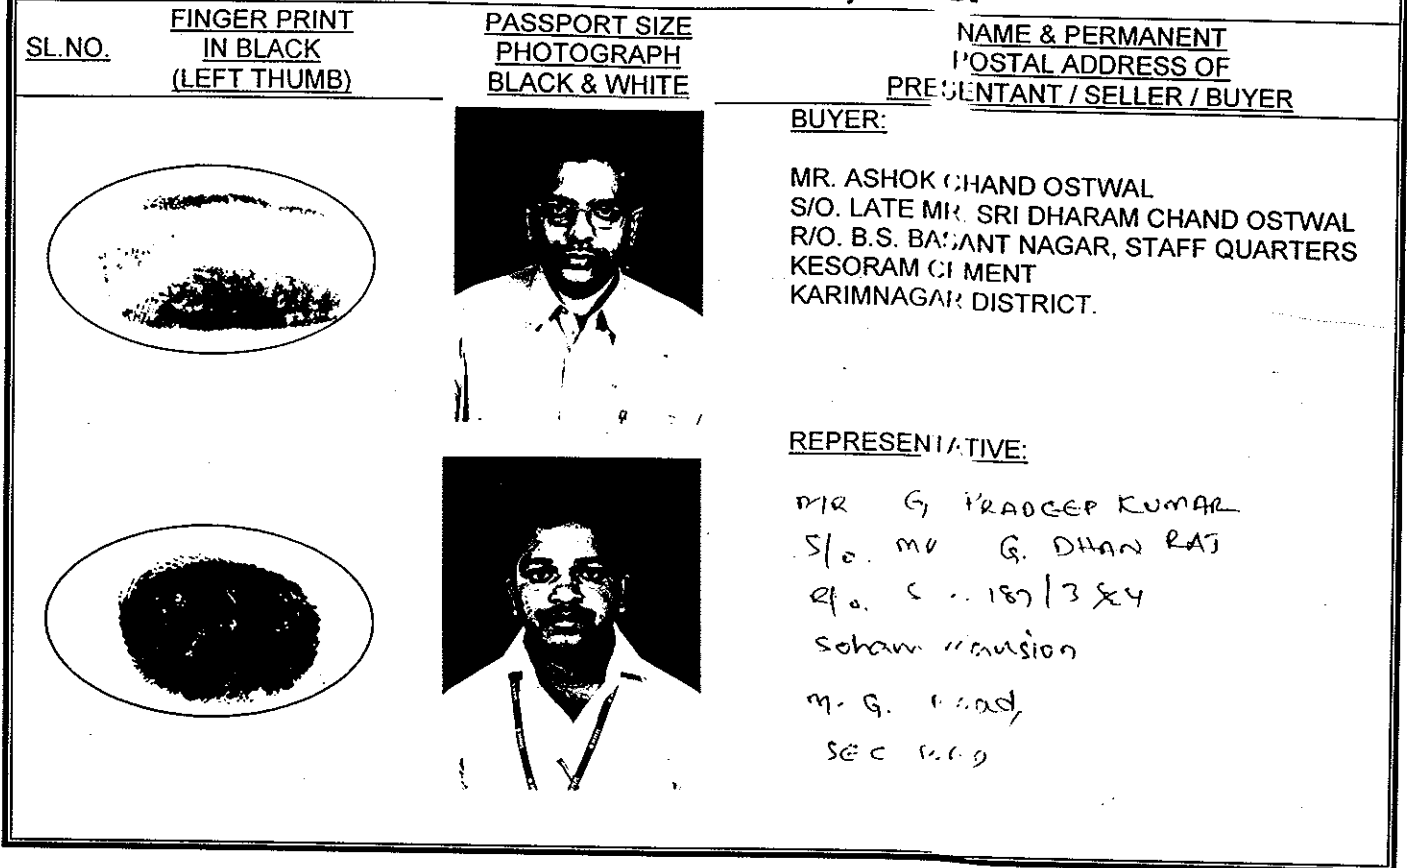 SL.NO.
FINGER PRINT
IN BLACK
(LEFT THUMB)
PASSPORT SIZE
PHOTOGRAPH
BLACK & WHITE
NAME & PERMANENT
POSTAL ADDRESS OF
PRESENTANT / SELLER / BUYER
BUYER:
MR. ASHOK CHAND OSTWAL
S/O. LATE MR. SRI DHARAM CHAND OSTWAL
R/O. B.S. BASANT NAGAR, STAFF QUARTERS
KESORAM CEMENT
KARIMNAGAR DISTRICT.
REPRESENTATIVE:
MR G, PRADEEP KUMAR
S/o. Mr G. DHAN RAJ
R/o. 187/3 &4
Soham Mansion
M. G. Road,